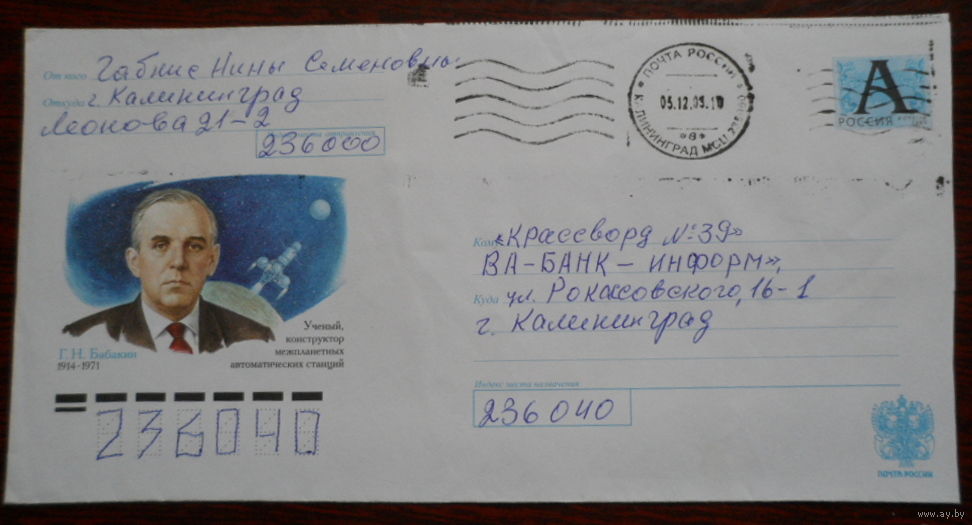 От кого Габкис Нины Семеновны
Откуда г. Калининград
Леонова 21-2
236000
ПОЧТА РОССИИ
05.12.03.10
КАЛИНИНГРАД МСЦ
«8»
А
РОССИЯ
Г. Н. Бабакин
1914-1971
Ученый,
конструктор
межпланетных
автоматических станций
236040
Кому «Крассворд №39»
ВА-БАНК-ИНФОРМ»,
Куда ул. Рокассовского, 16-1
г. Калининград
Индекс места назначения
236040
ПОЧТА РОССИИ
www.ay.by